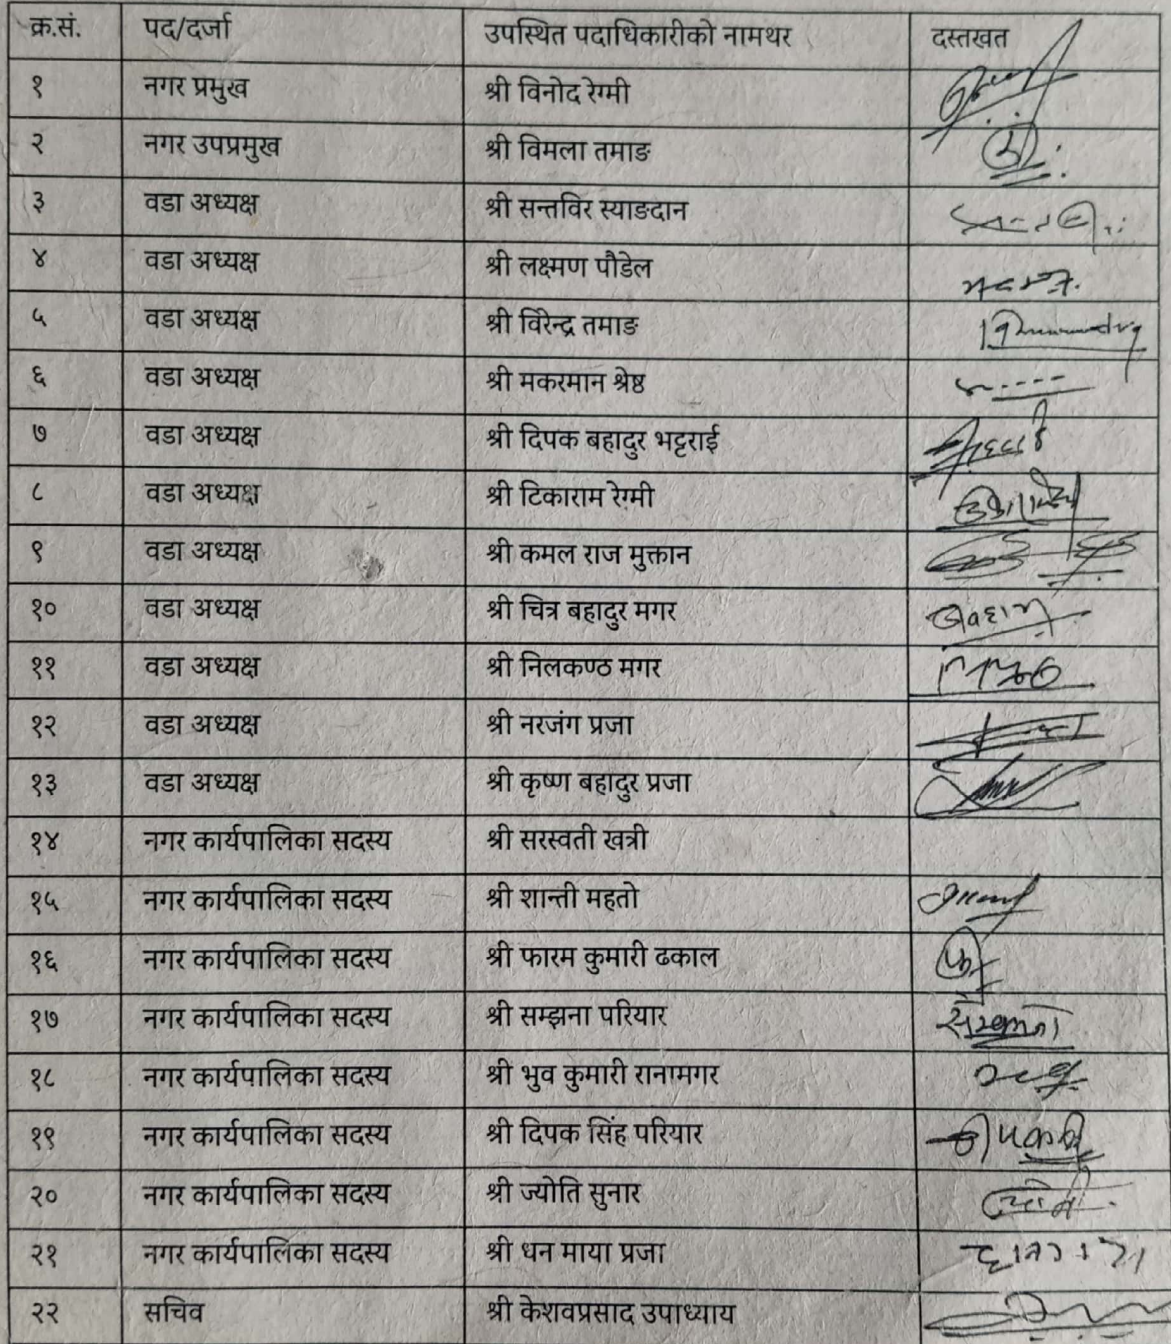 क्र.सं. पद/दर्जा उपस्थित पदाधिकारीको नामथर दस्तखत
१ नगर प्रमुख श्री विनोद रेग्मी
२ नगर उपप्रमुख श्री विमला तमाङ
३ वडा अध्यक्ष श्री सन्तविर स्याङदान
४ वडा अध्यक्ष श्री लक्ष्मण पौडेल
५ वडा अध्यक्ष श्री विरेन्द्र तमाङ
६ वडा अध्यक्ष श्री मकरमान श्रेष्ठ
७ वडा अध्यक्ष श्री दिपक बहादुर भट्टराई
८ वडा अध्यक्ष श्री टिकाराम रेग्मी
९ वडा अध्यक्ष श्री कमल राज मुक्तान
१० वडा अध्यक्ष श्री चित्र बहादुर मगर
११ वडा अध्यक्ष श्री निलकण्ठ मगर
१२ वडा अध्यक्ष श्री नरजंग प्रजा
१३ वडा अध्यक्ष श्री कृष्ण बहादुर प्रजा
१४ नगर कार्यपालिका सदस्य श्री सरस्वती खत्री
१५ नगर कार्यपालिका सदस्य श्री शान्ती महतो
१६ नगर कार्यपालिका सदस्य श्री फारम कुमारी ढकाल
१७ नगर कार्यपालिका सदस्य श्री सम्झना परियार
१८ नगर कार्यपालिका सदस्य श्री भुव कुमारी रानामगर
१९ नगर कार्यपालिका सदस्य श्री दिपक सिंह परियार
२० नगर कार्यपालिका सदस्य श्री ज्योति सुनार
२१ नगर कार्यपालिका सदस्य श्री धन माया प्रजा
२२ सचिव श्री केशवप्रसाद उपाध्याय